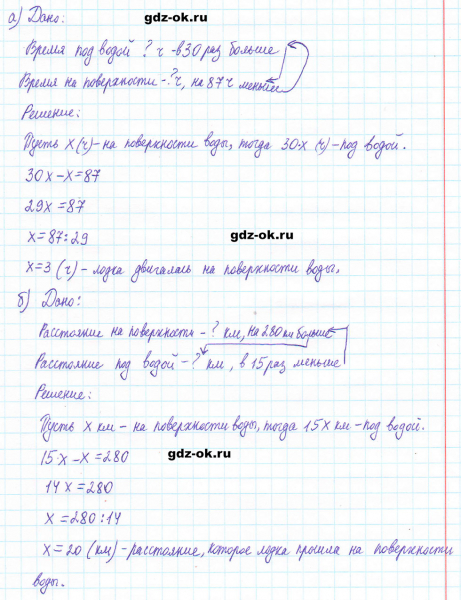 gdz-ok.ru
а) Дано:
Время под водой ? ч - в 30 раз больше
Время на поверхности - ? ч, на 87 ч меньше
Решение:
Пусть х (ч) - на поверхности воды, тогда 30·х (ч) - под водой.
30х - х = 87
29х = 87
х = 87 : 29
gdz-ok.ru
х = 3 (ч) - лодка двигалась на поверхности воды.
б) Дано:
Расстояние на поверхности - ? км, на 280 км больше
Расстояние под водой - ? км, в 15 раз меньше
Решение:
Пусть х км - на поверхности воды, тогда 15х км - под водой.
15·х - х = 280
gdz-ok.ru
14х = 280
х = 280 : 14
х = 20 (км) - расстояние, которое лодка прошла на поверхности
воды.